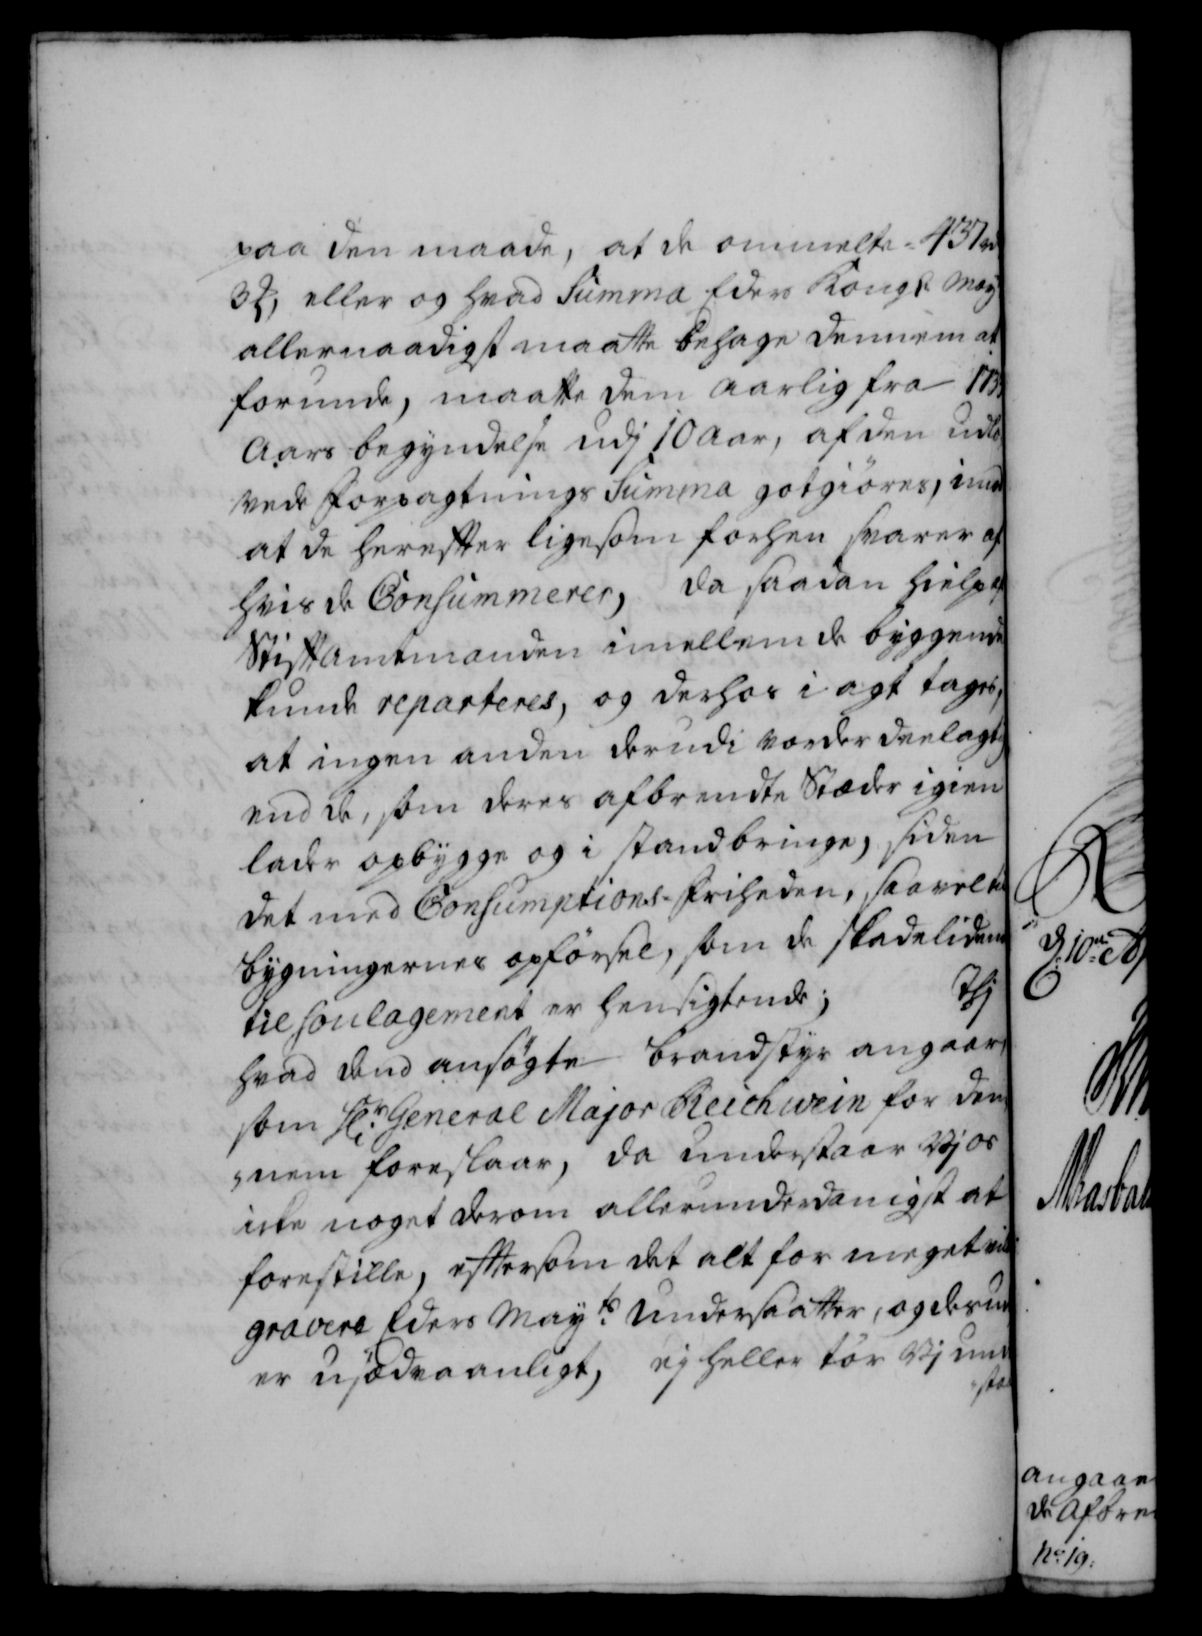 paa den maade, at de ommelte 437 rd
3 ß, eller og hvad Summa Eders Kongl. May
allernaadigst maatte behage dennem at
forunde, maatte dem aarlig fra 173
Aars begyndelse udj 10 Aar, af den udlo
vede Forpagtnings Summa gotgiöres, imod
at de herefter ligesom forhen svarer af
hvis de Consummerer, da saadan hielp af
Stiftamtmanden imellem de byggende
kunde reparteres, og derhos i agt tages,
at ingen anden derudi vorder deelagtig
end de, som deres afbrendte Stæder igien
lader opbygge og i stand bringe, siden
det med Consumptions-Friheden, saavel til
bygningernes opförsel, som de skadelidende
til soulagement er hensigtende; Thj
hvad dend ansögte brandstyr angaar,
som Hr. General Major Reichwein for den
nem foreslaar, da understaar Vj os
icke noget derom allerunderdanigst at
forestille, eftersom det alt for meget vil
gravere Eders Mayts. Undersaatter, og desuden
er usædvaanligt, ej heller tör Vj und
sta
d. 10de
angaaen
de Afbre
No. 19.